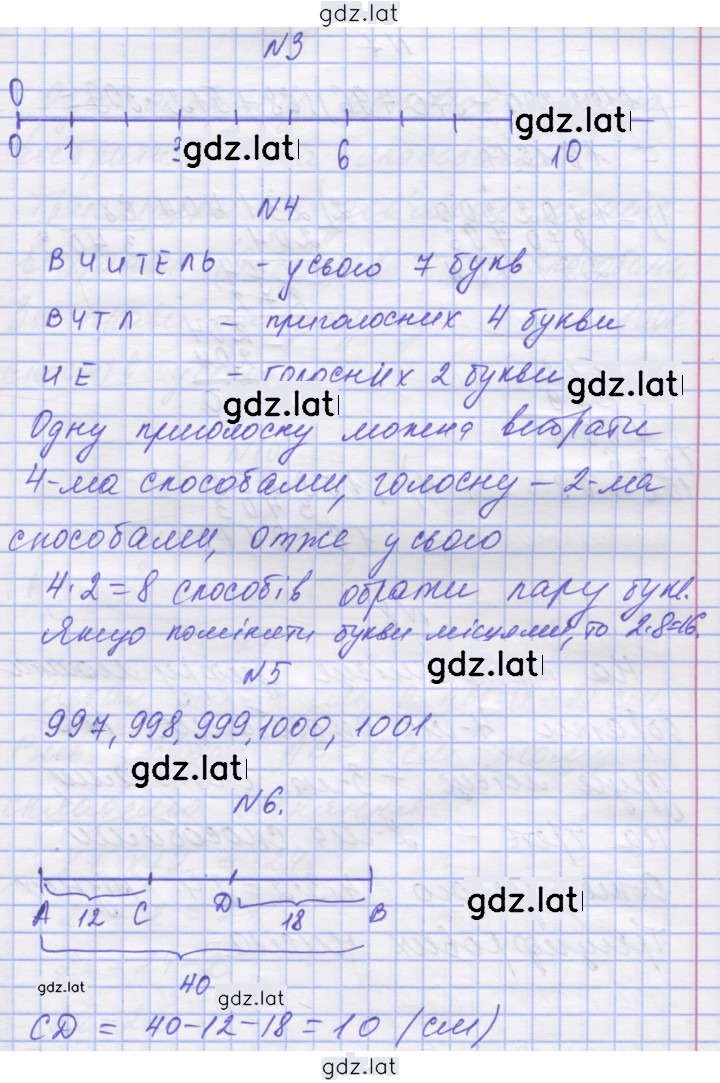 gdz.lat
N3
0
gdz.lat
0 1 3 6 10
gdz.lat
N4
ВЧИТЕЛЬ - усього 7 букв
ВЧТЛ - приголосних 4 букви
ИЕ - голосних 2 букви
gdz.lat
gdz.lat
Одну приголосну можна вибрати
4-ма способами, голосну - 2-ма
способами, отже усього
4·2=8 способів обрати пару букв.
Якщо поміняти букви місцями, то 2·8=16.
gdz.lat
N5
997, 998, 999, 1000, 1001
gdz.lat
N6.
A 12 C D 18 B
gdz.lat
40
gdz.lat
gdz.lat
CD = 40-12-18=10 (см)
gdz.lat